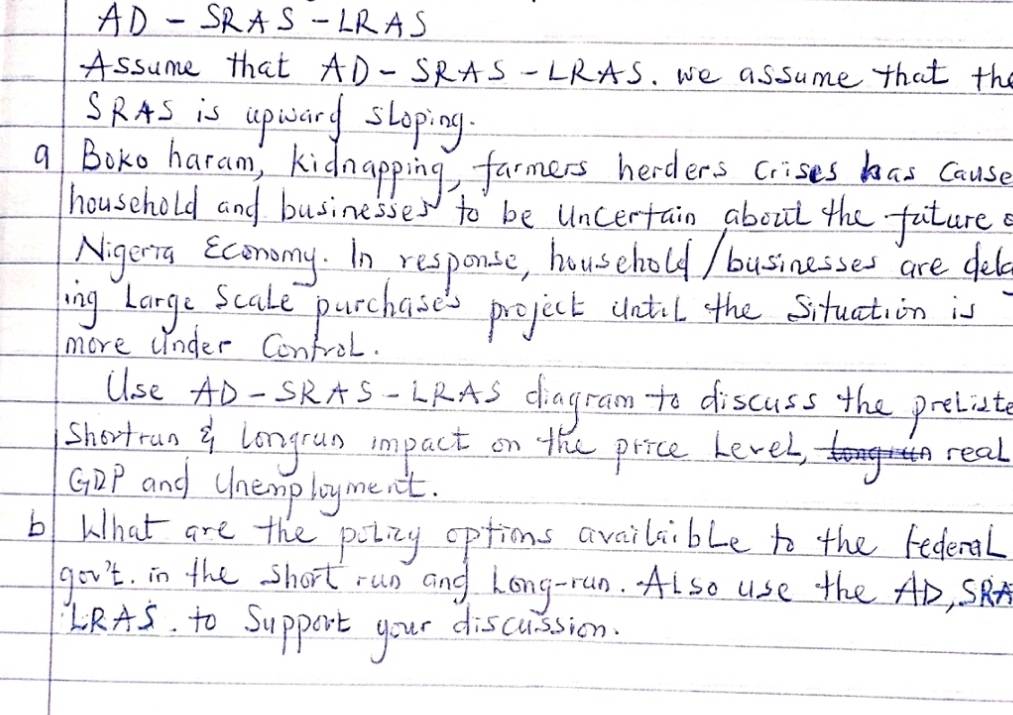 AD - SRAS - LRAS
Assume that AD - SRAS - LRAS. we assume that the
SRAS is upward sloping.
a Boko haram, kidnapping, farmers herders Crises has Cause
household and businesses to be Uncertain about the future o
Nigeria Economy. In response, household/businesses are dela
ing Large Scale purchases project Until the Situation is
more Under Control.
Use AD - SRAS - LRAS diagram to discuss the
Shortrun & Longrun impact on the price Level, real
GDP and Unemployment.
b What are the policy options available to the Federal
gov't. in the Short run and Long-run. Also use the AD, SRA
LRAS. to Support your discussion.